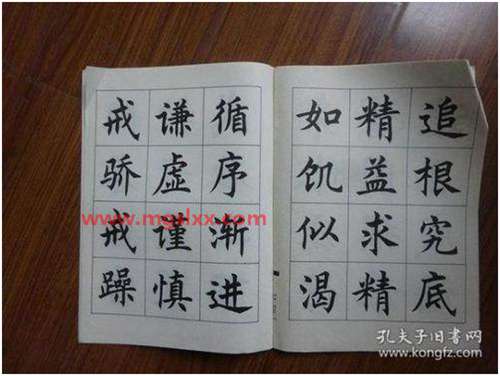 追根究底
精益求精
如饥似渴
循序渐进
谦虚谨慎
戒骄戒躁
www.mgxlxx.com
孔夫子旧书网
www.kongfz.com